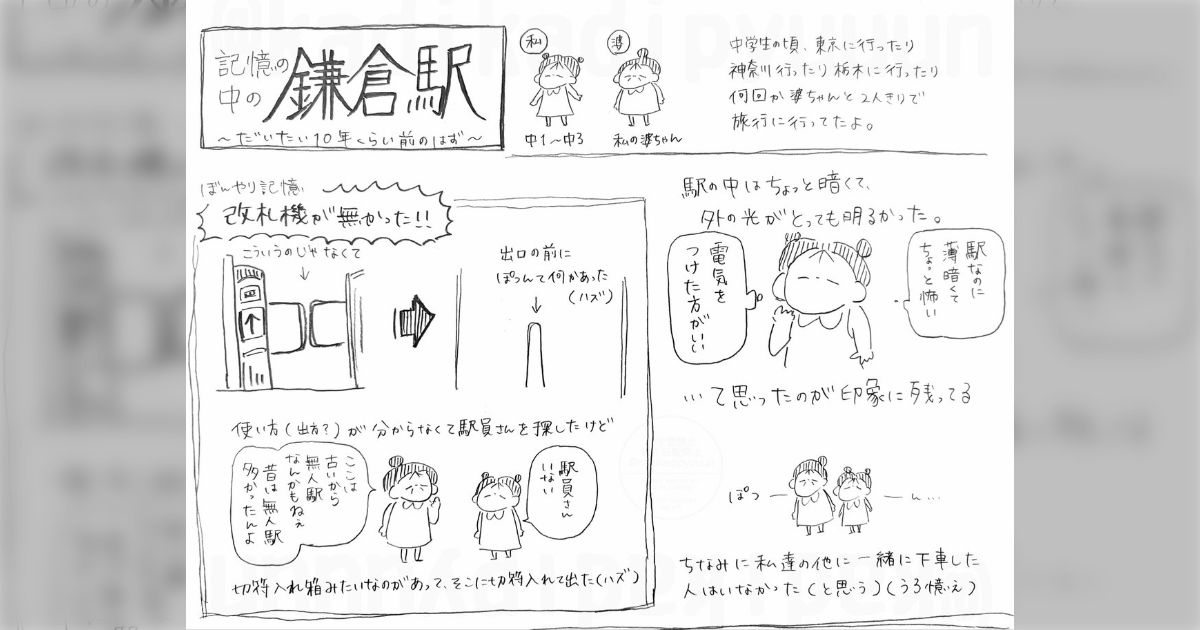 記憶の
中の
鎌倉駅
〜だいたい10年くらい前のはず〜
私
中1〜中3
婆
私の婆ちゃん
中学生の頃、東京に行ったり
神奈川行ったり栃木に行ったり
何回か婆ちゃんと2人きりで
旅行に行ってたよ。
ぼんやり記憶
改札機が無かった!!
こういうのじゃなくて
出口の前に
ぽつんて何かあった
(ハズ)
使い方(出方?)が分からなくて駅員さんを探したけど
駅員さん
いない
ここは
古いから
無人駅
なんかもねぇ
昔は無人駅
多かったんよ
切符入れ箱みたいなのがあって、そこに切符入れて出た(ハズ)
駅の中はちょっと暗くて、
外の光がとっても明るかった。
駅なのに
薄暗くて
ちょっと怖い
電気を
つけた方がいい
…て思ったのが印象に残ってる
ぽつ—
—ん…
ちなみに私達の他に一緒に下車した
人はいなかった(と思う)(うろ憶え)